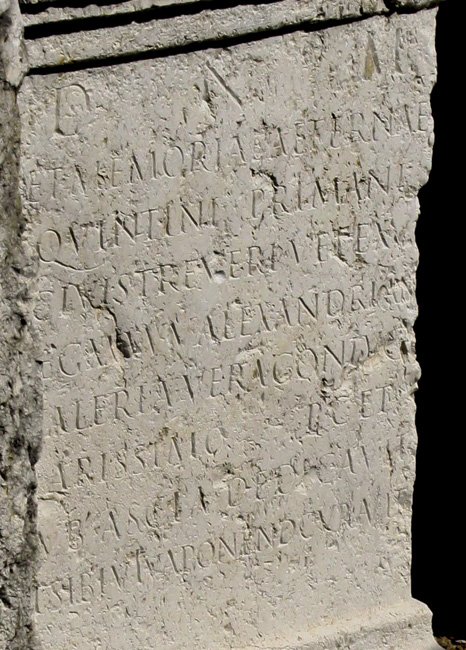 D M
ET MEMORIAE AETERNAE
QVINTINI PRIMANI
CIVIS TREVERI VET EX
LEG VALEXANDRIAN
ALERIA VERAGONIVS
RISSIMO P ET
B ASCIA DEDICAVIT
T SIBI VIVA PONEND CVRAVIT